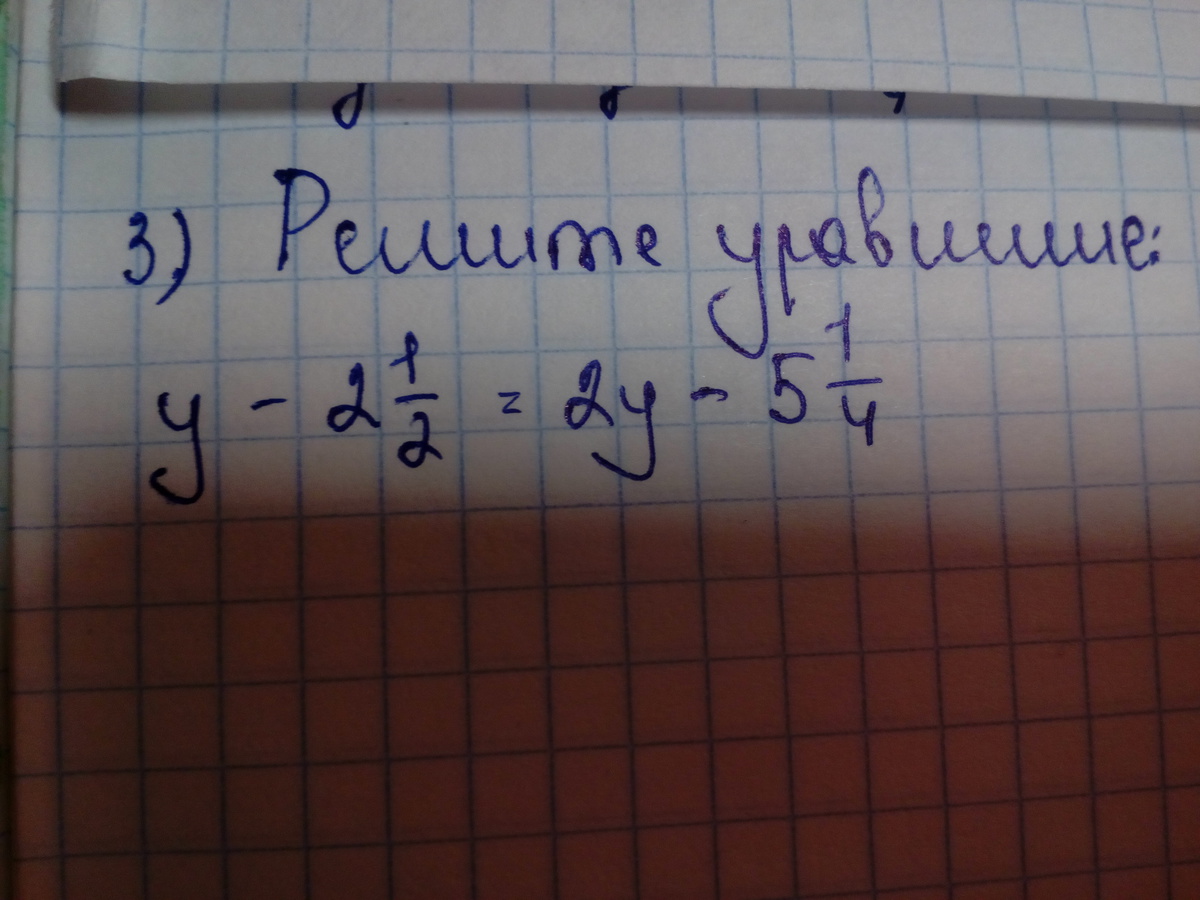 3) Решите уравнение:
y - 2 1/2 = 2y - 5 1/4